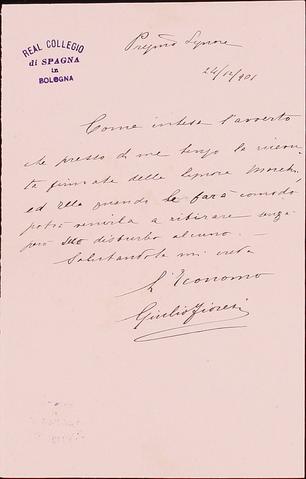 REAL COLLEGIO
di SPAGNA
in
BOLOGNA
Pregmo Signore
24/12/901
Come intesa l'avverto
che presso di me tengo la ricevu-
ta firmata della Signora March.
ed Ella quando Le farà comodo
potrà venirla a ritirare senza
però Suo disturbo alcuno. —
Salutandola mi creda
L'Economo
Giulio Fioresi